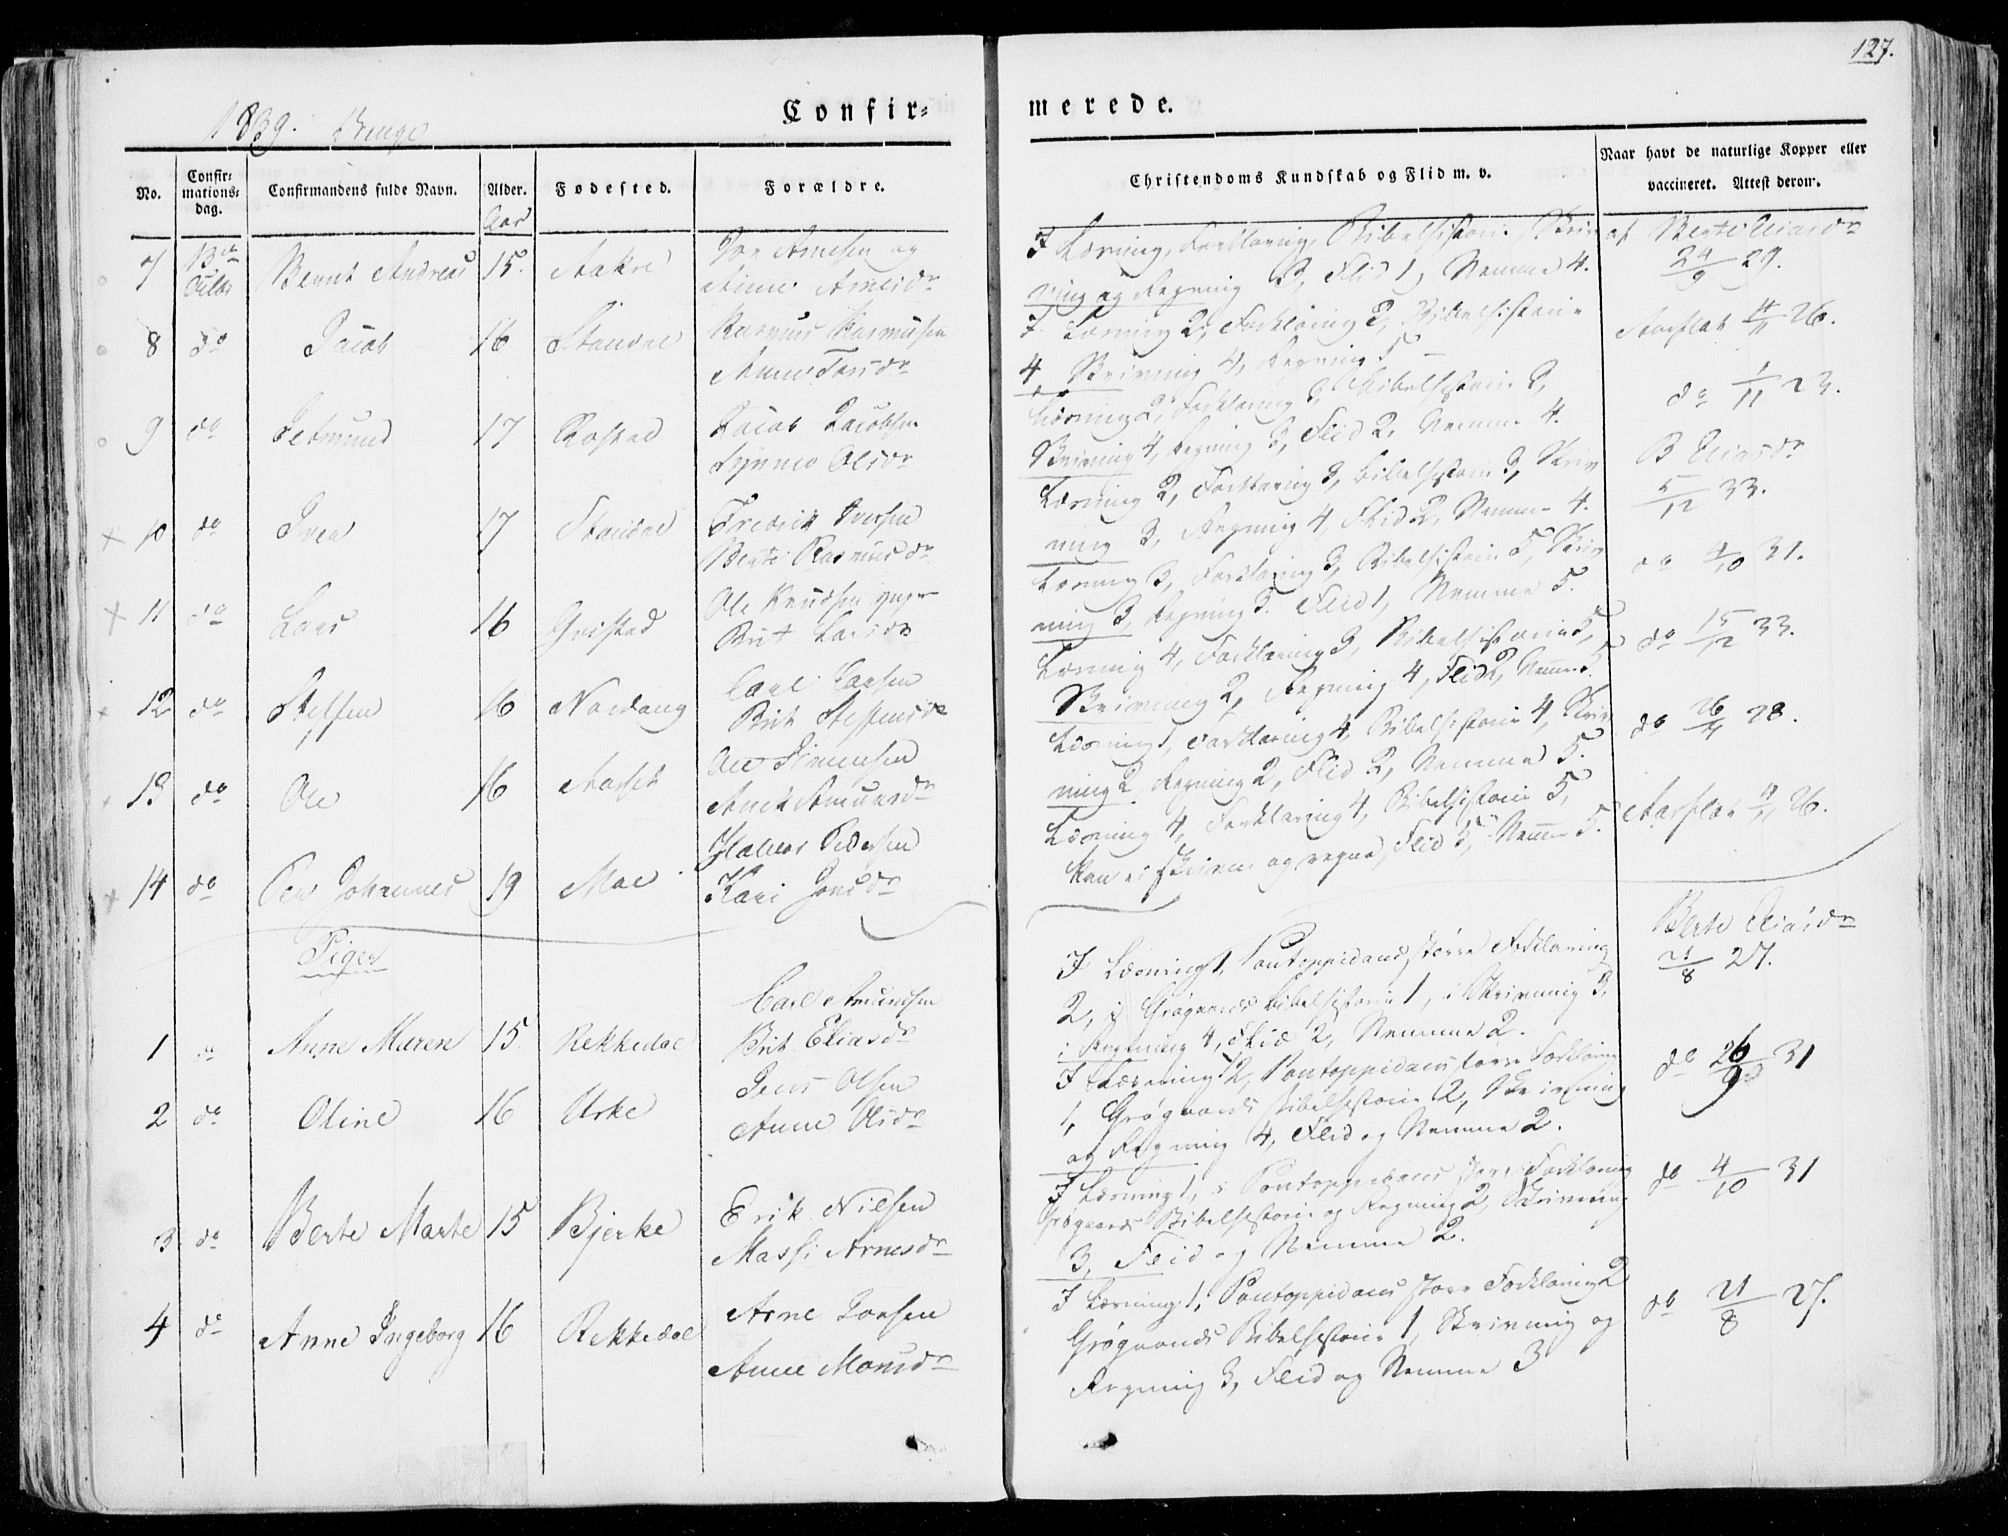 127.
1839. Drenge
Confir=
merede.
No.
Confir=
mations=
dag.
Confirmandens fulde Navn.
Alder.
Fødested.
Forældre.
Christendoms Kundskab og Flid m. v.
Naar havt de naturlige Kopper eller
vaccineret. Attest derom.
Aar
7 Bernt Andreas 15. Aakre
og
Arnesdr
I Læsning, Forklaring, Bibelhistorie, Skriv
ning og Regning 3, Flid 1, Nemme 4.
af Berte Eliasdr
24/9 29.
8 do Jacob 16 Standal
Rasmus Rasmusen
Anne
I Læsning 2, Forklaring 2, Bibelhistorie
4 Skrivning 4, Regning 5
Aarflot 4/11 26.
9 do Jetmund 17
Jacob Jacobsen
Olsdr
Læsning 2, Forklaring 3, Bibelhistorie 3,
Skrivning 4, Regning 3, Flid 2, Nemme 4.
do 1/11 23.
10 do Iver 17 Standal
Fredrik Iversen
Berte Rasmusdr
Læsning 2, Forklaring 3, Bibelhistorie 3, Skriv
ning 3, Regning 4, Flid 2, Nemme 4.
B Eliasdr
5/12 33.
11 do Lars 16
Ole Knudsen
Brit Larsdr
Læsning 3, Forklaring 3, Bibelhistorie 5, Skriv
ning 3, Regning 3. Flid 1, Nemme 5.
do 4/10 31.
12 do Steffen 16 Nordang
Carl Larsen
Brit Steffensdr
Læsning 4, Forklaring 3, Bibelhistorie 5,
Skrivning 2, Regning 4, Flid 2, Nemme 5.
do 15/12 33.
13 do Ole 16 Aarset
Ole
Læsning 1, Forklaring 4, Bibelhistorie 4, Skriv
ning 2, Regning 2, Flid 2, Nemme 5.
do 26/4 28.
14 do Peer Johannes 19 Moe
Halvor Pedersen
Kari Jonsdr
Læsning 4, Forklaring 4, Bibelhistorie 5,
Kan ei skrive og regne, Flid 3, Nemme 5.
Aarflot 4/11 26.
Piger
1 do Anne Maren 15. Rekkedal
Carl Amundsen
Brit Eliasdr
I Læsning 1, Pontoppidans større Forklaring
2, i Grøgaards Bibelhistorie 1, i Skrivning 3,
i Regning 4, Flid 2, Nemme 2.
Berte Eliasdr
21/8 27.
2 do Oline 16 Urke
Jens Olsen
Anne Olsdr
I Læsning 2, Pontoppidans større Forklaring
1, Grøgaards Bibelhistorie 2, Skrivning
og Regning 4, Flid og Nemme 2.
do 26/9 31
3 do Berte Marte 15 Bjerke
Erik Nilsen
Massi Arnesdr
I Læsning 1, i Pontoppidans større Forklaring
Grøgaards Bibelhistorie og Regning 2, Skrivning
3, Flid og Nemme 2.
do 4/10 31
4 do Anne Ingeborg 16 Rekkedal
Arne Larsen
Anne Monsdr
I Læsning 1, Pontoppidans større Forklaring 2
Grøgaards Bibelhistorie 1, Skrivning og
Regning 3, Flid og Nemme 3
do 21/8 27.